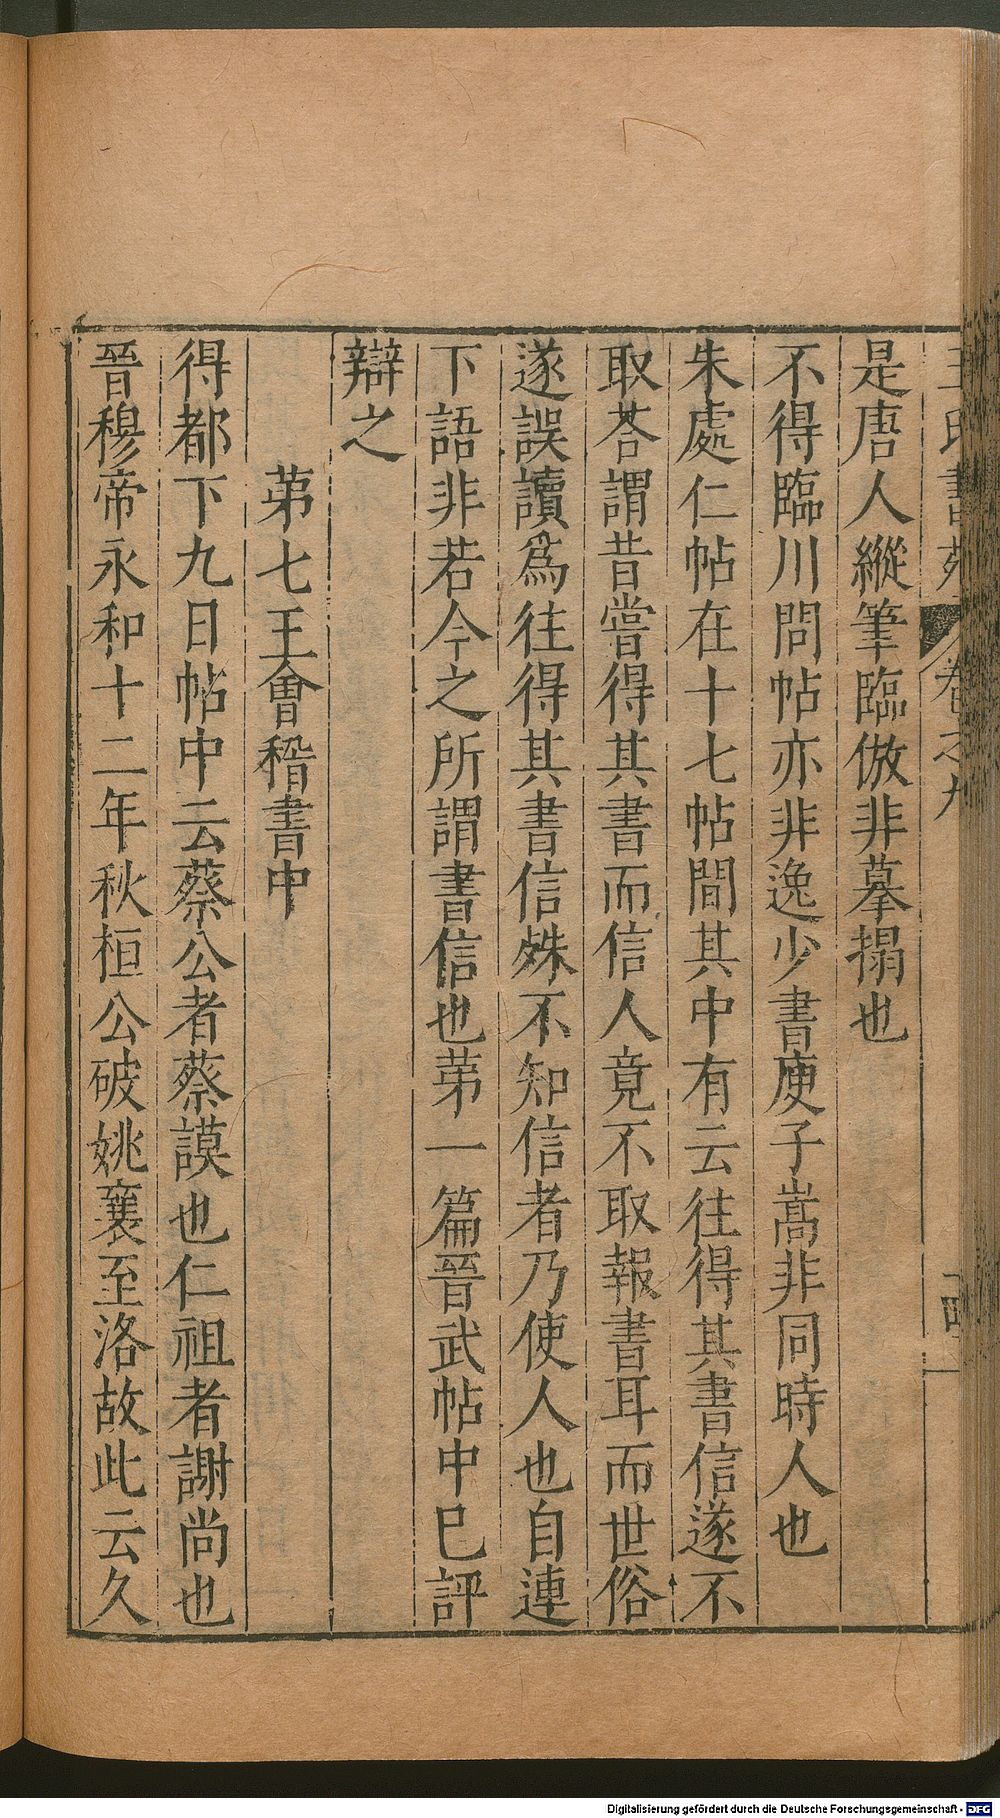 王氏書苑 卷之九
是唐人縱筆臨倣非摹搨也
不得臨川問帖亦非逸少書庾子嵩非同時人也
朱處仁帖在十七帖間其中有云往得其書信遂不
取荅謂昔嘗得其書而信人竟不取報書耳而世俗
遂誤讀爲往得其書信殊不知信者乃使人也自連
下語非若今之所謂書信也苐一篇晉武帖中巳評
辯之
苐七王會稽書中
得都下九日帖中云蔡公者蔡謨也仁祖者謝尚也
晉穆帝永和十二年秋桓公破姚襄至洛故此云久
Digitalisierung gefördert durch die Deutsche Forschungsgemeinschaft - DFG